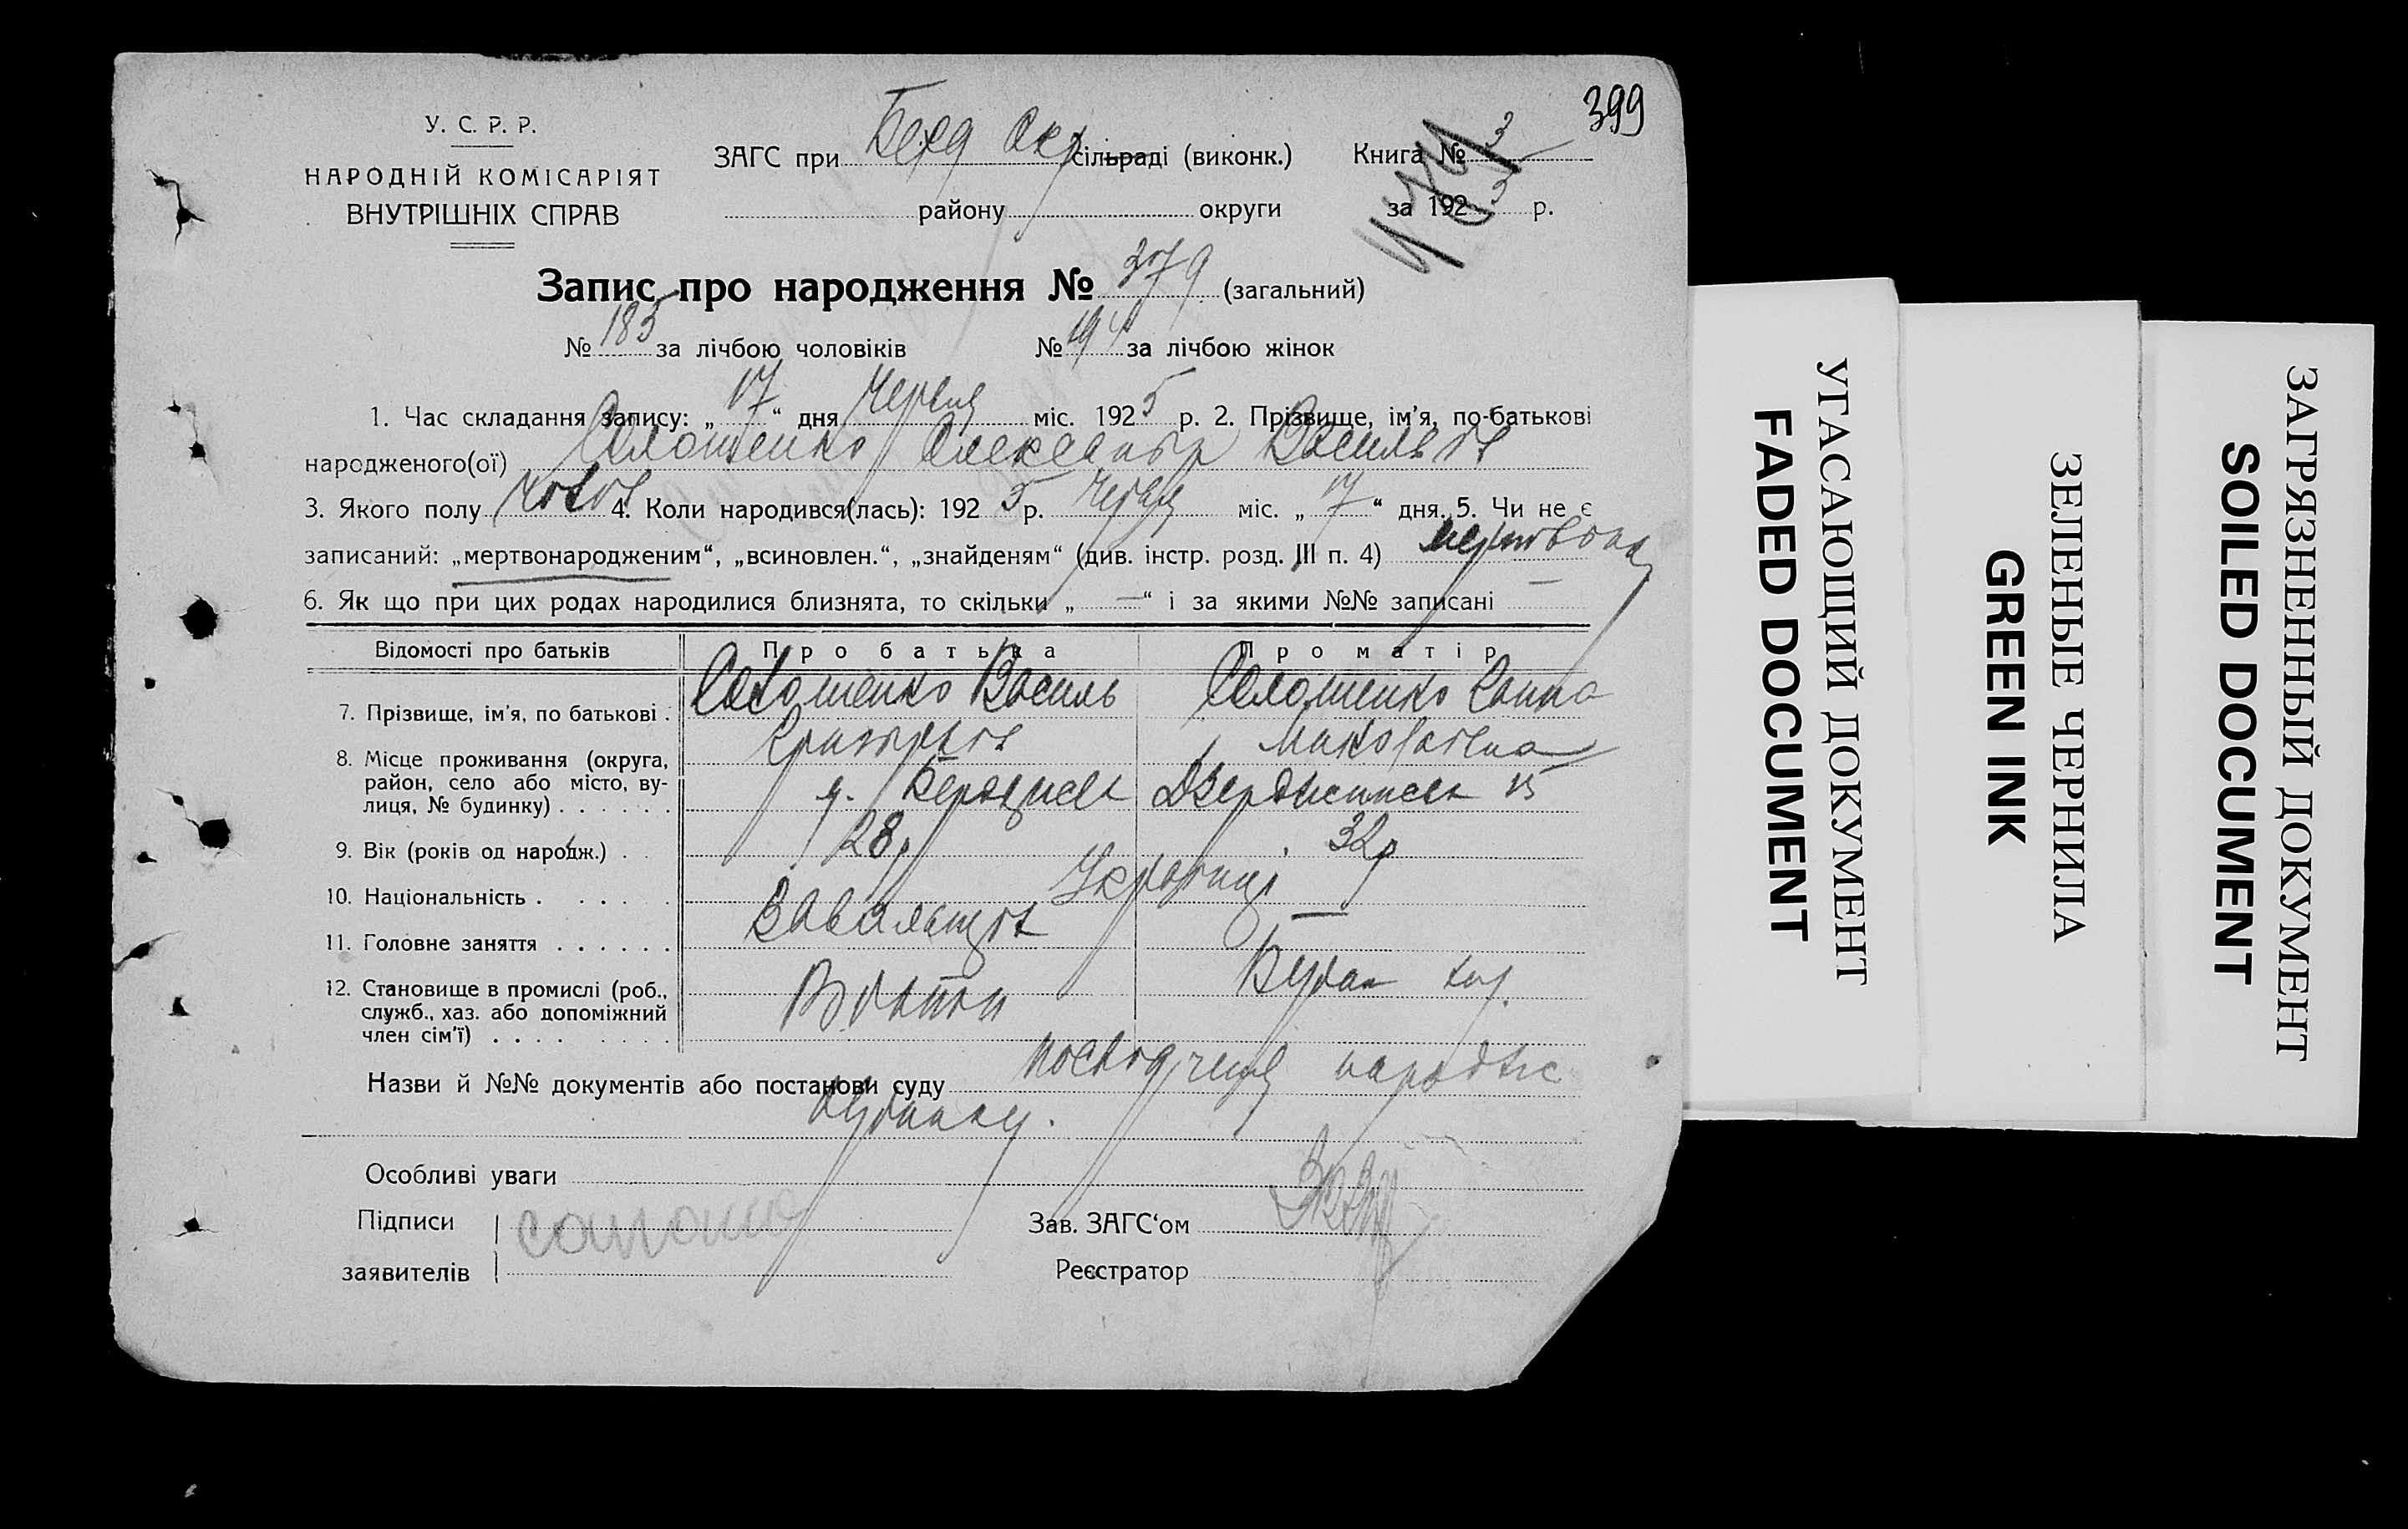 399
У. С. Р. Р.
НАРОДНІЙ КОМІСАРІЯТ
ВНУТРІШНІХ СПРАВ
ЗАГС при Берд Окр сільраді (виконк.) Книга № 3
району округи за 1925 р.
Запис про народження № 379 (загальний)
№ 185 за лічбою чоловіків № 194 за лічбою жінок
1. Час складання запису: „ 17 “ дня Червня міс. 1925 р. 2. Прізвище, ім'я, по-батькові
народженого(ої) Соломенко Олександр Васильов
3. Якого полу чолов 4. Коли народився(лась): 1925 р. Червня міс. „ 17 “ дня. 5. Чи не є
записаний: „мертвонародженим“, „всиновлен.“, „знайденям“ (див. інстр. розд. III п. 4)
6. Як що при цих родах народилися близнята, то скільки „ — “ і за якими №№ записані —
Відомості про батьків Про батька Про матір
7. Прізвище, ім'я, по батькові . Соломенко Василь Соломенко Ганна
Григорьов Миколаївна
8. Місце проживання (округа,
район, село або місто, вулиця, № будинку) . . . . . . Бердичев 15
9. Вік (років од народж.) . . 28 р 32 р
10. Національність . . . . . Українці
11. Головне заняття . . . . . . —
12. Становище в промислі (роб.,
служб., хаз. або допоміжний
член сім'ї) . . . . . . . .
Назви й №№ документів або постанови суду посвідчення народже
будинку.
Особливі уваги
Підписи Зав. ЗАГС‘ом
заявителів Реєстратор
УГАСАЮЩИЙ ДОКУМЕНТ
FADED DOCUMENT
ЗЕЛЕНЫЕ ЧЕРНИЛА
GREEN INK
ЗАГРЯЗНЕННЫЙ ДОКУМЕНТ
SOILED DOCUMENT